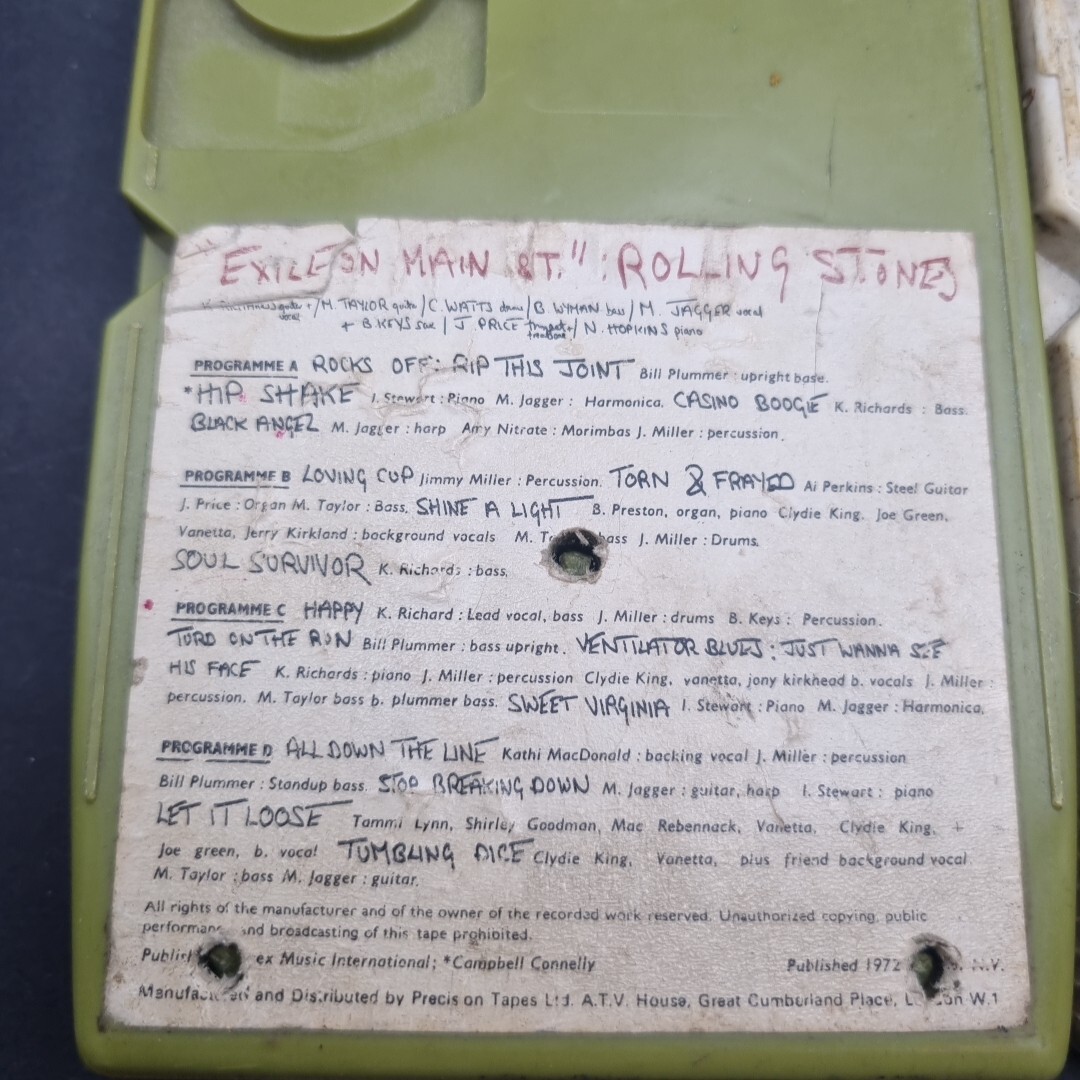 "EXILE ON MAIN ST." : ROLLING STONES
/M. TAYLOR guitar/C. WATTS drums/B. WYMAN bass/M. JAGGER vocal
+ B. KEYS sax / J. PRICE trumpet + trombone / N. HOPKINS piano
PROGRAMME A ROCKS OFF: RIP THIS JOINT Bill Plummer : upright base.
*HIP SHAKE I. Stewart : Piano M. Jagger : Harmonica. CASINO BOOGIE K. Richards : Bass.
BLACK ANGEL M. Jagger : harp Amy Nitrate : Morimbas J. Miller : percussion.
PROGRAMME B LOVING CUP Jimmy Miller : Percussion. TORN & FRAYED Ai Perkins : Steel Guitar
J. Price : Organ M. Taylor : Bass. SHINE A LIGHT B. Preston, organ, piano Clydie King. Joe Green,
Vanetta, Jerry Kirkland : background vocals M. bass J. Miller : Drums.
SOUL SURVIVOR K. Richards : bass.
PROGRAMME C HAPPY K. Richard : Lead vocal, bass J. Miller : drums B. Keys : Percussion.
TURD ON THE RUN Bill Plummer : bass upright. VENTILATOR BLUES : JUST WANNA SEE
HIS FACE K. Richards : piano J. Miller : percussion Clydie King, vanetta, jony kirkhead b. vocals J. Miller :
percussion. M. Taylor bass b. plummer bass. SWEET VIRGINIA I. Stewart : Piano M. Jagger : Harmonica.
PROGRAMME D ALL DOWN THE LINE Kathi MacDonald : backing vocal J. Miller : percussion
Bill Plummer : Standup bass. STOP BREAKING DOWN M. Jagger : guitar, harp I. Stewart : piano
LET IT LOOSE Tammi Lynn, Shirley Goodman, Mac Rebennack, Vanetta, Clydie King, +
Joe green, b. vocal TUMBLING DICE Clydie King, Vanetta, plus friend background vocal
M. Taylor : bass M. Jagger : guitar.
All rights of the manufacturer and of the owner of the recorded work reserved. Unauthorized copying, public
and broadcasting of this tape prohibited.
ex Music International; *Campbell Connelly Published 1972 N.V.
Manufactured and Distributed by Precision Tapes Ltd. A.T.V. House, Great Cumberland Place, London W.1